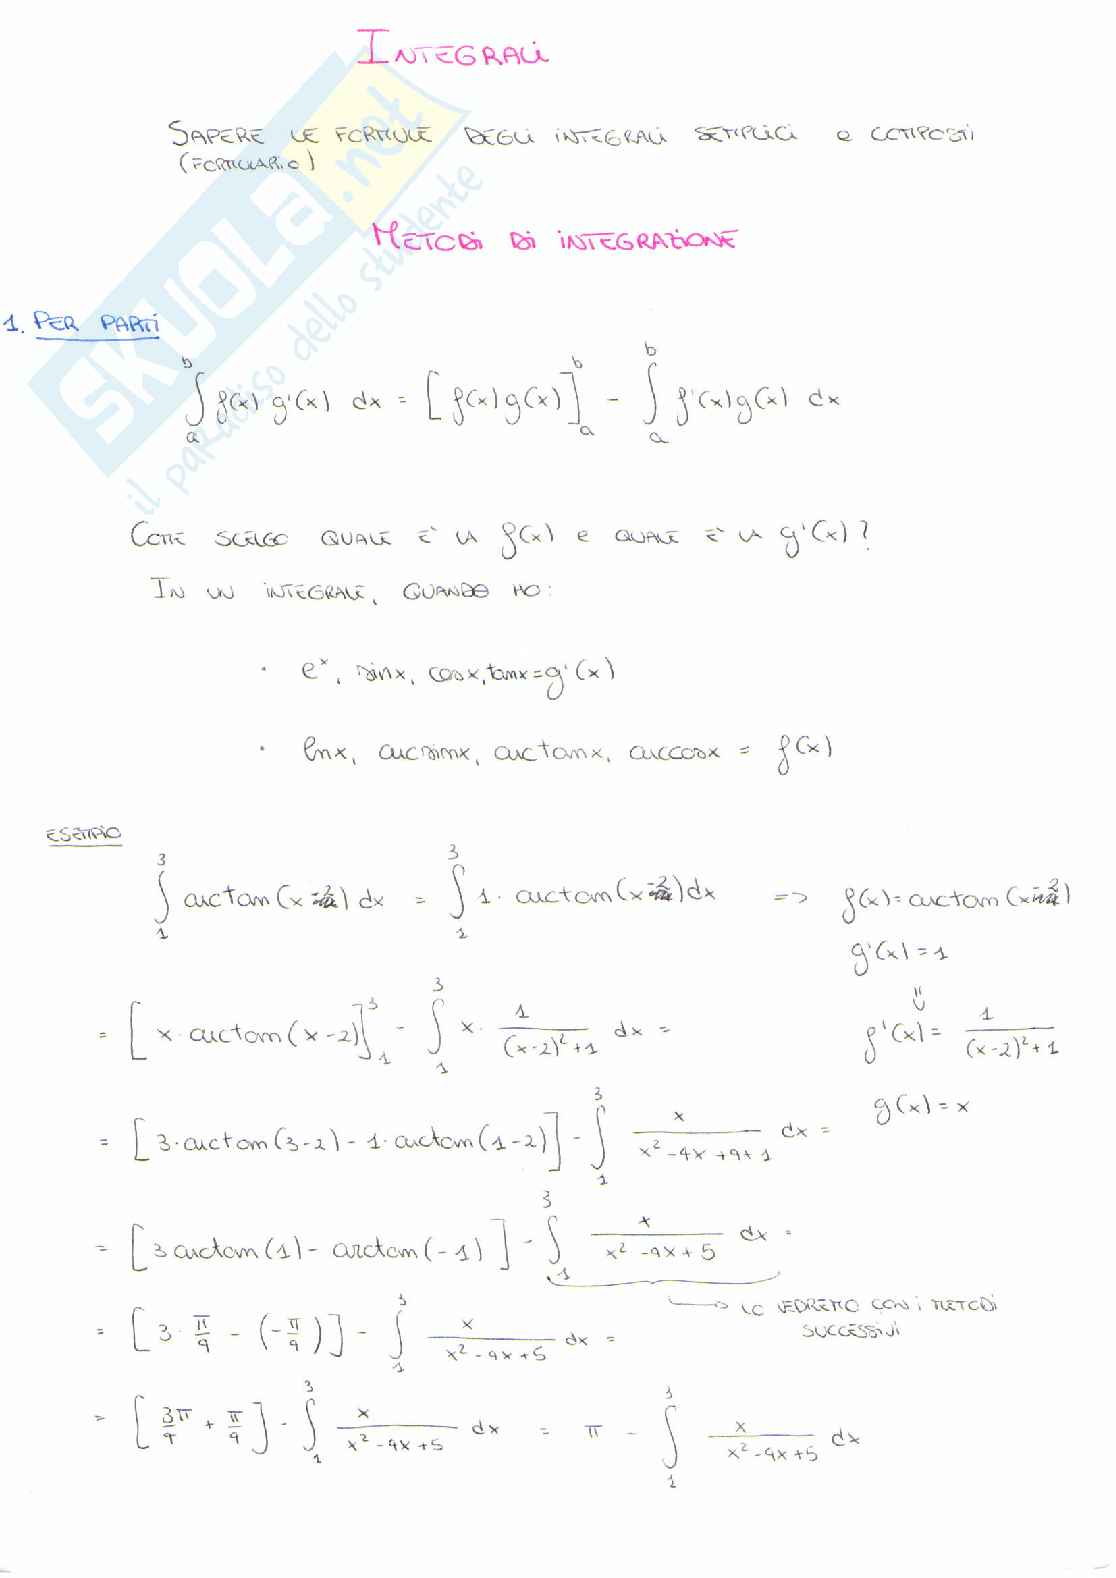 INTEGRALI
SAPERE LE FORMULE DEGLI INTEGRALI SEMPLICI e COMPOSTI
(FORMULARIO)
METODI DI INTEGRAZIONE
1. PER PARTI
∫_a^b f(x) g'(x) dx = [f(x)g(x)]_a^b - ∫_a^b f'(x)g(x) dx
COME SCELGO QUALE E' LA f(x) e QUALE E' LA g'(x)?
IN UN INTEGRALE, QUANDO HO:
· e^x, sinx, cosx, tanx = g'(x)
· lnx, arcsinx, arctanx, arccosx = f(x)
ESEMPIO
∫_1^3 arctan(x-2) dx = ∫_1^3 1· arctan(x-2)dx => f(x)= arctan(x-2)
g'(x) = 1
= [x· arctan(x-2)]_1^3 - ∫_1^3 x· 1/((x-2)^2+1) dx = f'(x) = 1/((x-2)^2+1)
g(x) = x
= [3·arctan(3-2) - 1·arctan(1-2)] - ∫_1^3 x/(x^2-4x+4+1) dx =
= [3 arctan(1) - arctan(-1)] - ∫_1^3 x/(x^2-4x+5) dx =
LO VEDREMO CON I METODI
SUCCESSIVI
= [3· π/4 - (-π/4)] - ∫_1^3 x/(x^2-4x+5) dx =
= [3π/4 + π/4] - ∫_1^3 x/(x^2-4x+5) dx = π - ∫_1^3 x/(x^2-4x+5) dx
SKUOLA.net
il paradiso dello studente